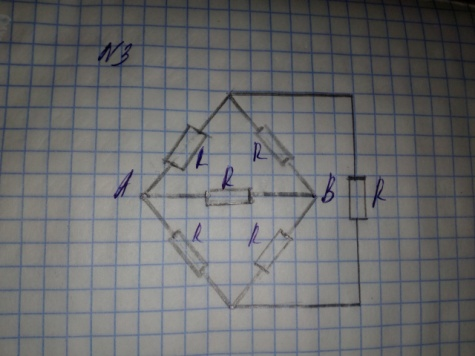 N3
R
R
R
A
B
R
R
R